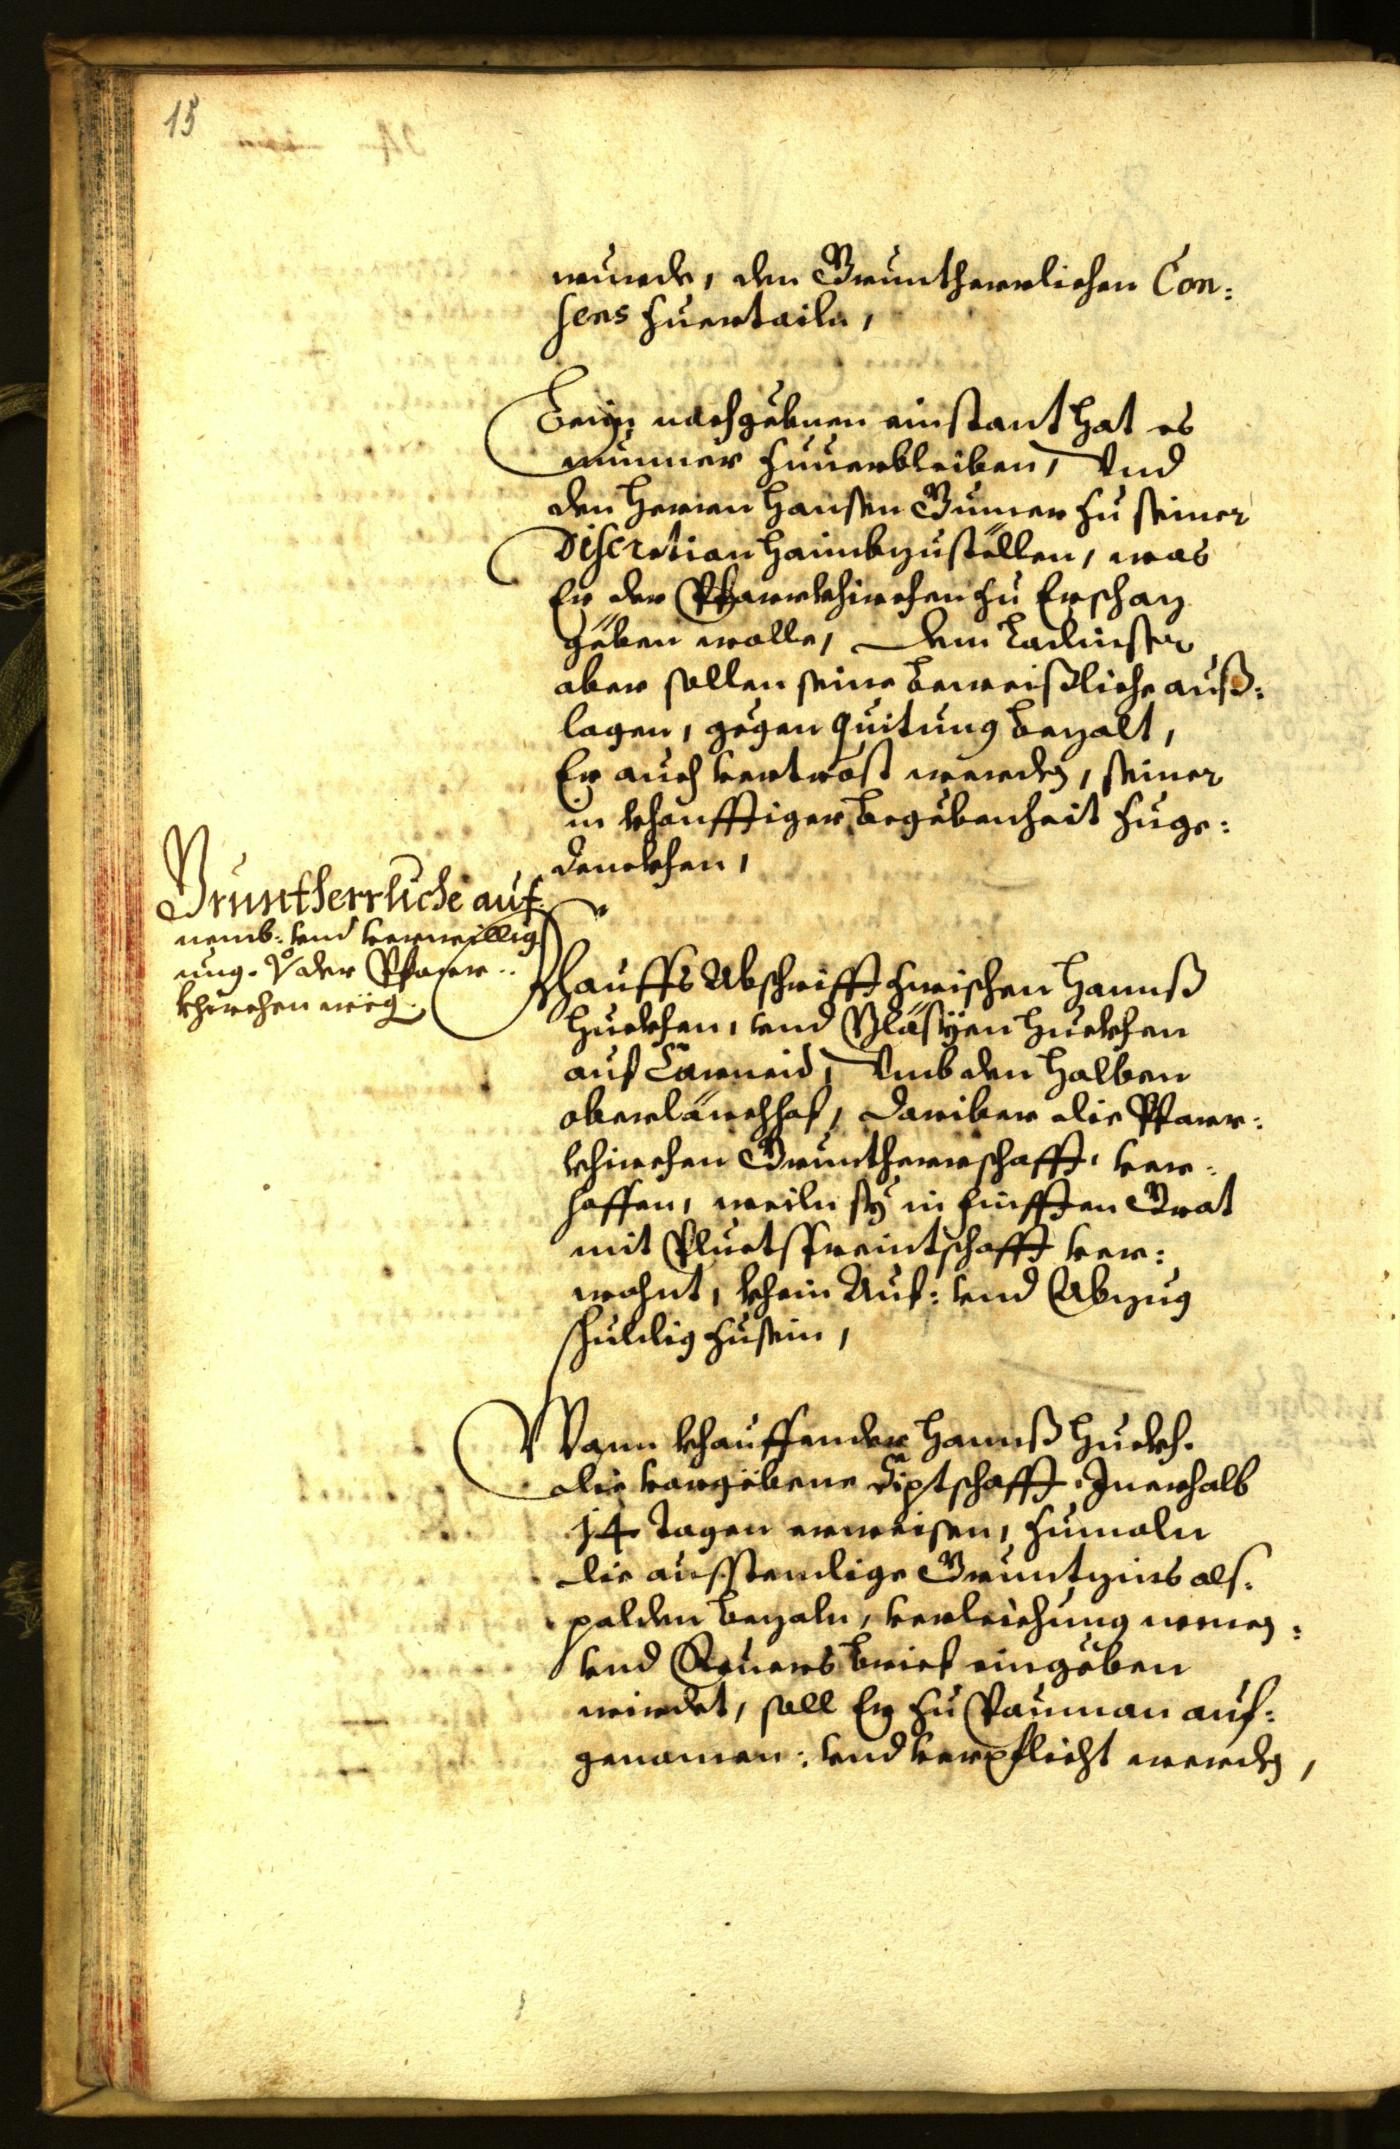 15
wurde, den Gruntherrlichen Con:
sens zuertailn,
Beim nachgebnen einstant hat es
nunmer zuuerbleiben, Vnd
den Herren Hansen Gumer zu seiner
Discretion haimbzustellen, was
Er der Pfarrkhirchen zu Erschaz
geben wolle, Dem
aber sollen seine beweißliche auß:
lagen, gegen quitung bezalt,
Er auch vertröst werden, seiner
in khonfftiger begebenheit zuge:
denckhen,
Gruntherrliche auf
nemb: vnd verwillig
ung. der Pfarr:
khirchen weg.
Khauffs Abschrifft zwischen Hannß
Huckhen, vnd Bläsyen Huckhen
auf Carneid, Vmb den halben
oberlärchhof, dariber die Pfarr:
khirchen Gruntherrschafft, ver:
hoffen, weiln sy in finfften Grat
mit Pluetsfreintschafft ver:
wohnt, khein Auf: vnd Abzug
schuldig zusein,
Wann khauffender Hannß Huckh.
die vorgebene Siptschafft, Inerhalb
14 Tagen erweisen, zumaln
die ausstendige Gruntzins als:
palden bezaln, verleichung nemen:
vnd Reuers brief eingeben
wirdet, soll Er zu Pauman auf:
genomen: vnd verpflicht werden,